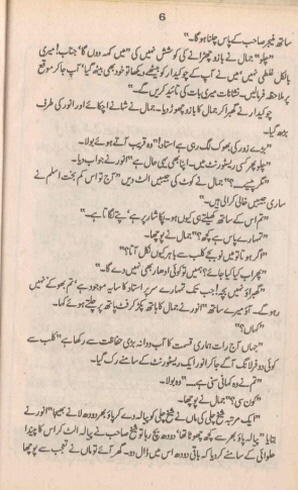 6
ساتھ منیجر صاحب کے پاس چلنا ہو گا۔"
"چلو" جمال نے بازو چھڑانے کی کوشش نہیں کی "میں کہہ دوں گا 'جناب! میری
بالکل غلطی نہیں' میں نے آپ کے چوکیدار کو بیٹھے دیکھا تو خود بھی بیٹھ گیا' آپ جا کر موقع
پر ملاحظہ فرمالیں۔ نشانات میری بات کی تائید کریں گے۔"
چوکیدار نے گھبرا کر جمال کا بازو چھوڑ دیا۔ جمال نے شانے اچکائے اور انور کی طرف
بڑھ گیا۔
"بڑے زور کی بھوک لگ رہی ہے استاد!" وہ قریب آتے ہوئے بولا۔
"چلو پھر کسی ریسٹورنٹ میں۔ اپنا بھی یہی حال ہے" انور نے جواب دیا۔
"مگر پیسے؟" جمال نے کوٹ کی جیبیں الٹ دیں "آج تو اس کم بخت اسلم نے
ساری جیبیں خالی کرالی ہیں۔"
"تم اس کے ساتھ کھیلتے ہی کیوں ہو۔ پکا شارپر ہے' پتے لگاتا ہے۔"
"تمہارے پاس ہے کچھ؟" جمال نے پوچھا۔
"اگر ہوتا تو میں یوں کلب سے باہر کیوں نکل آتا؟"
"پھر اب کیا کیا جائے؟ ہمیں تو کوئی ادھار بھی نہیں دے گا۔"
"گھبراؤ نہیں بچہ! جب تک تمہارے سر پر استاد کا سایہ موجود ہے' تم بھوکے نہیں
رہو گے۔ آؤ میرے ساتھ" انور نے جمال کا ہاتھ پکڑ کر فٹ پاتھ پر چلتے ہوئے کہا۔
"کہاں؟"
"جہاں آج رات ہماری قسمت کا آب و دانہ بڑی حفاظت سے رکھا ہے" کلب سے
کوئی دو فرلانگ آگے جا کر انور ایک ریسٹورنٹ کے سامنے رک گیا۔
"تم نے وہ کہانی سنی ہے...." وہ بولا۔
"کون سی؟" جمال نے پوچھا۔
"ایک مرتبہ شیخ چلی کی ماں نے شیخ چلی کو پیالہ دے کر پاؤ بھر دودھ لانے بھیجا" انور نے
بتایا "پیالہ پاؤ بھر سے کچھ چھوٹا تھا' دودھ بچ رہا تو شیخ صاحب نے پیالہ الٹ کر اس کا پیندا
حلوائی کے سامنے کر دیا کہ باقی دودھ اس میں ڈال دو۔ گھر آئے تو ماں نے تعجب سے پوچھا